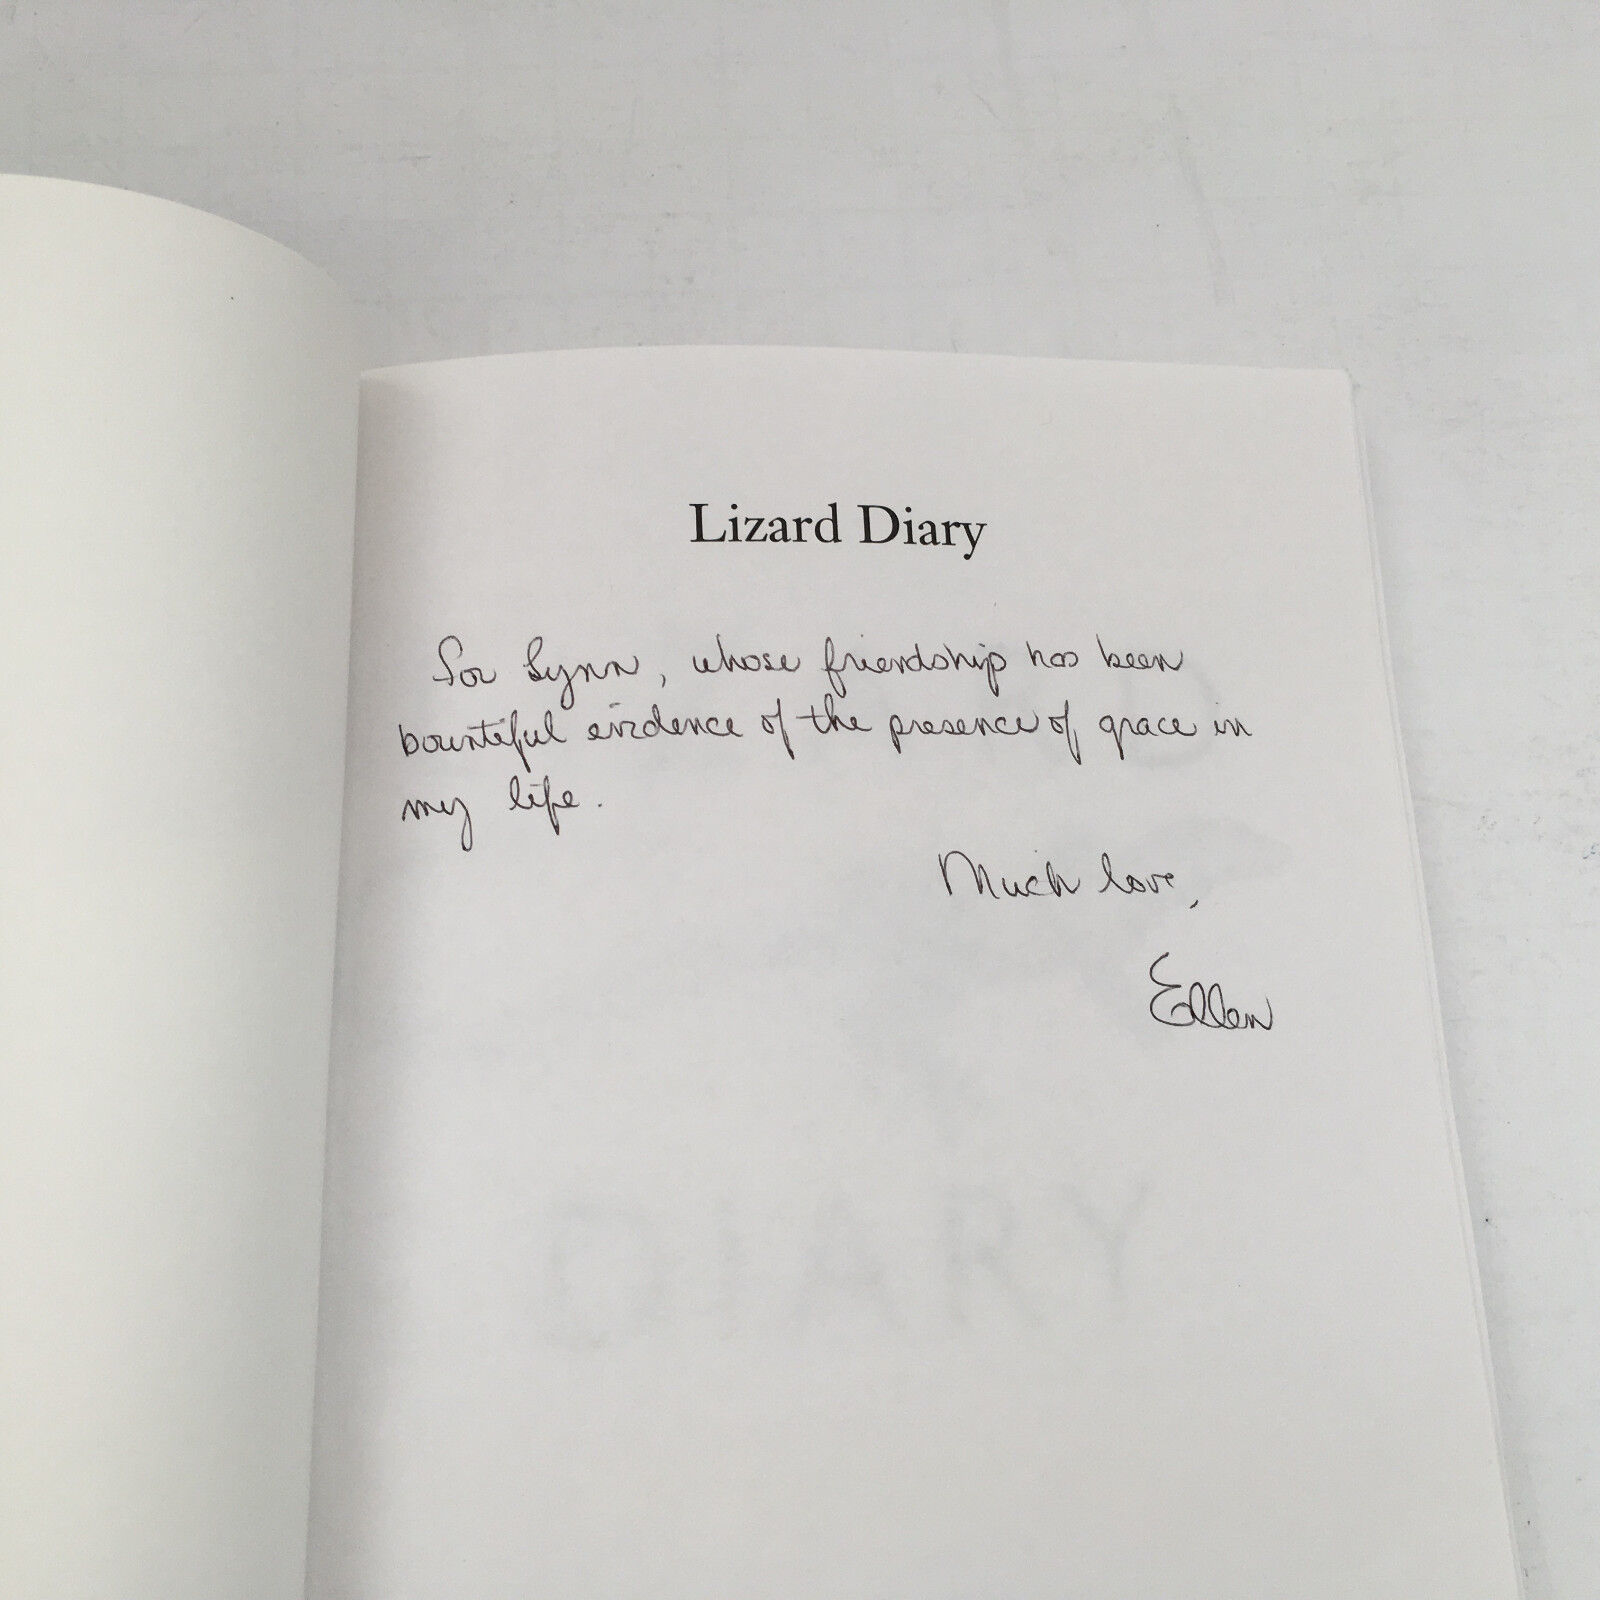 Lizard Diary
For Lynn, whose friendship has been
bountiful evidence of the presence of grace in
my life.
Much love,
Ellen
DIARY